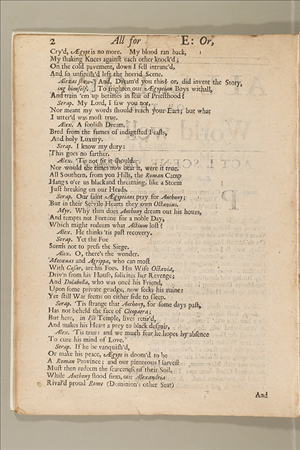 2 All for E: Or,
Cry'd, Ægypt is no more. My blood ran back,
My shaking Knees against each other knock'd;
On the cold pavement, down I fell intranc'd,
And so unfinish'd left the horrid Scene.
And, Dream'd you this? or, did invent the Story,
ing himself. To frighten our Ægyptian Boys withall,
And train 'em up betimes in fear of Priesthood?
Serap. My Lord, I saw you not,
Nor meant my words should reach your Ears; but what
I utter'd was most true.
Alex. A foolish Dream,
Bred from the fumes of indigested Feasts,
And holy Luxury.
Serap. I know my duty:
This goes no farther.
Alex. 'Tis not fit it should:
Nor would the times now bear it, were it true.
All Southern, from you Hills, the Roman Camp
Hangs o'er us black and threatning, like a Storm
Just breaking on our Heads.
Serap. Our faint Ægyptians pray for Anthony;
But in their Servile Hearts they own Octavius.
Myr. Why then does Anthony dream out his hours,
And tempts not Fortune for a noble Day,
Which might redeem what Actium lost?
Alex. He thinks 'tis past recovery.
Serap. Yet the Foe
Seems not to press the Siege.
Alex. O, there's the wonder.
Mecenas and Agrippa, who can most
With Cæsar, are his Foes. His Wife Octavia,
Driv'n from his House, solicits her Revenge;
And Dolabella, who was once his Friend,
Upon some private grudge, now seeks his ruine:
Yet still War seems on either side to sleep.
Serap. 'Tis strange that Anthony, for some days past,
Has not beheld the face of Cleopatra;
But here, in Isis Temple, lives retir'd,
And makes his Heart a prey to black despair,
Alex. 'Tis true: and we much fear he hopes by absence
To cure his mind of Love.
Serap. If he be vanquish'd,
Or make his peace, Ægypt is doom'd to be
A Roman Province; and our plenteous Harvest
Must then redeem the scarceness of their Soil,
While Anthony stood firm, our Alexandria
Rival'd proud Rome (Dominion's other Seat)
And